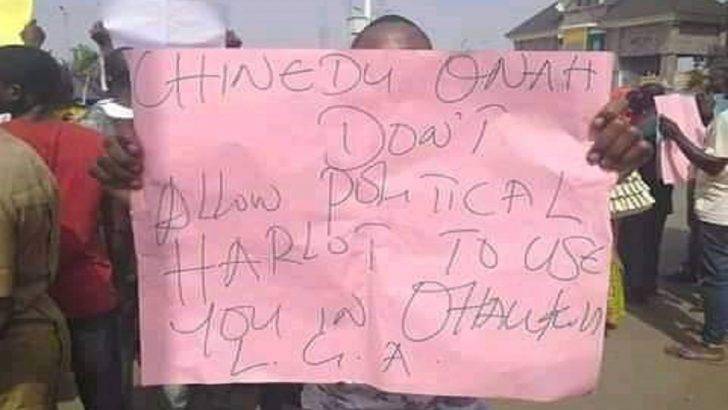 CHINEDU ONAH
DON'T
ALLOW POLITICAL
HARLOT TO USE
YOU IN OHAUKWU
L.G.A.